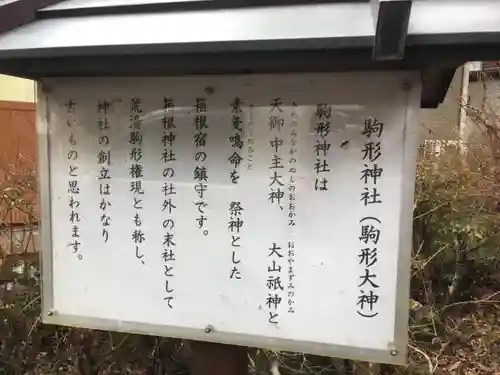 駒形神社（駒形大神）
駒形神社は
あめのみなかのぬしのおおかみ　おおやまずみのかみ
天御中主大神、　大山祇神と
素戔嗚命を　祭神とした
箱根宿の鎮守です。
箱根神社の社外の末社として
荒湯駒形権現とも称し、
神社の創立はかなり
古いものと思われます。